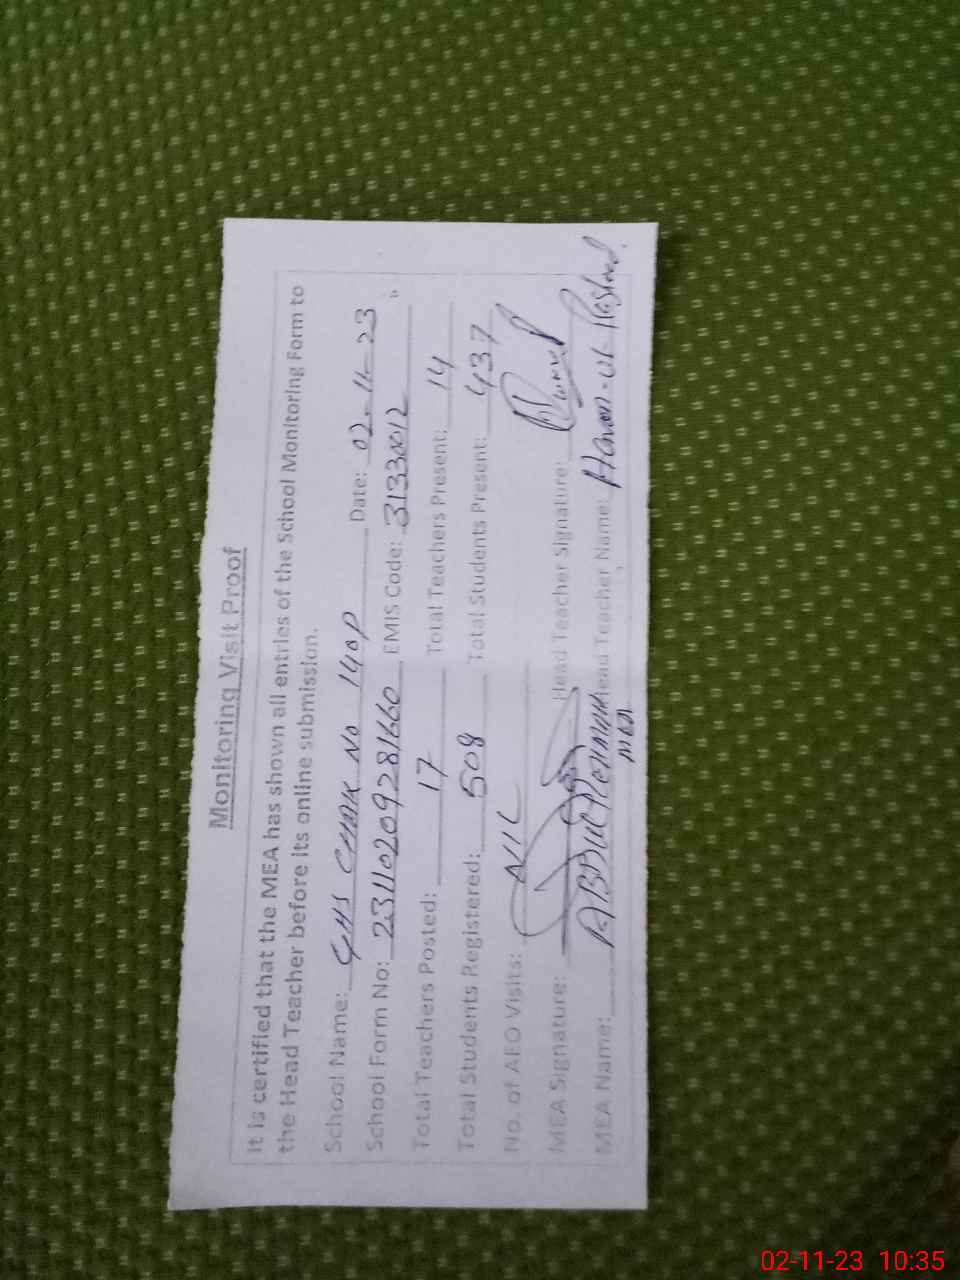 Monitoring Visit Proof
It is certified that the MEA has shown all entries of the School Monitoring Form to
the Head Teacher before its online submission.
School Name: GHS CHAK NO 140P Date: 02-11-23
School Form No: 23110209281660 EMIS Code: 31330012
Total Teachers Posted: 17 Total Teachers Present: 14
Total Students Registered: 508 Total Students Present: 437
No. of AEO Visits: NIL
MEA Signature: Head Teacher Signature:
MEA Name: ABDUL REHMAN Head Teacher Name: Haroon-ul-Rashed
MEA
02-11-23 10:35